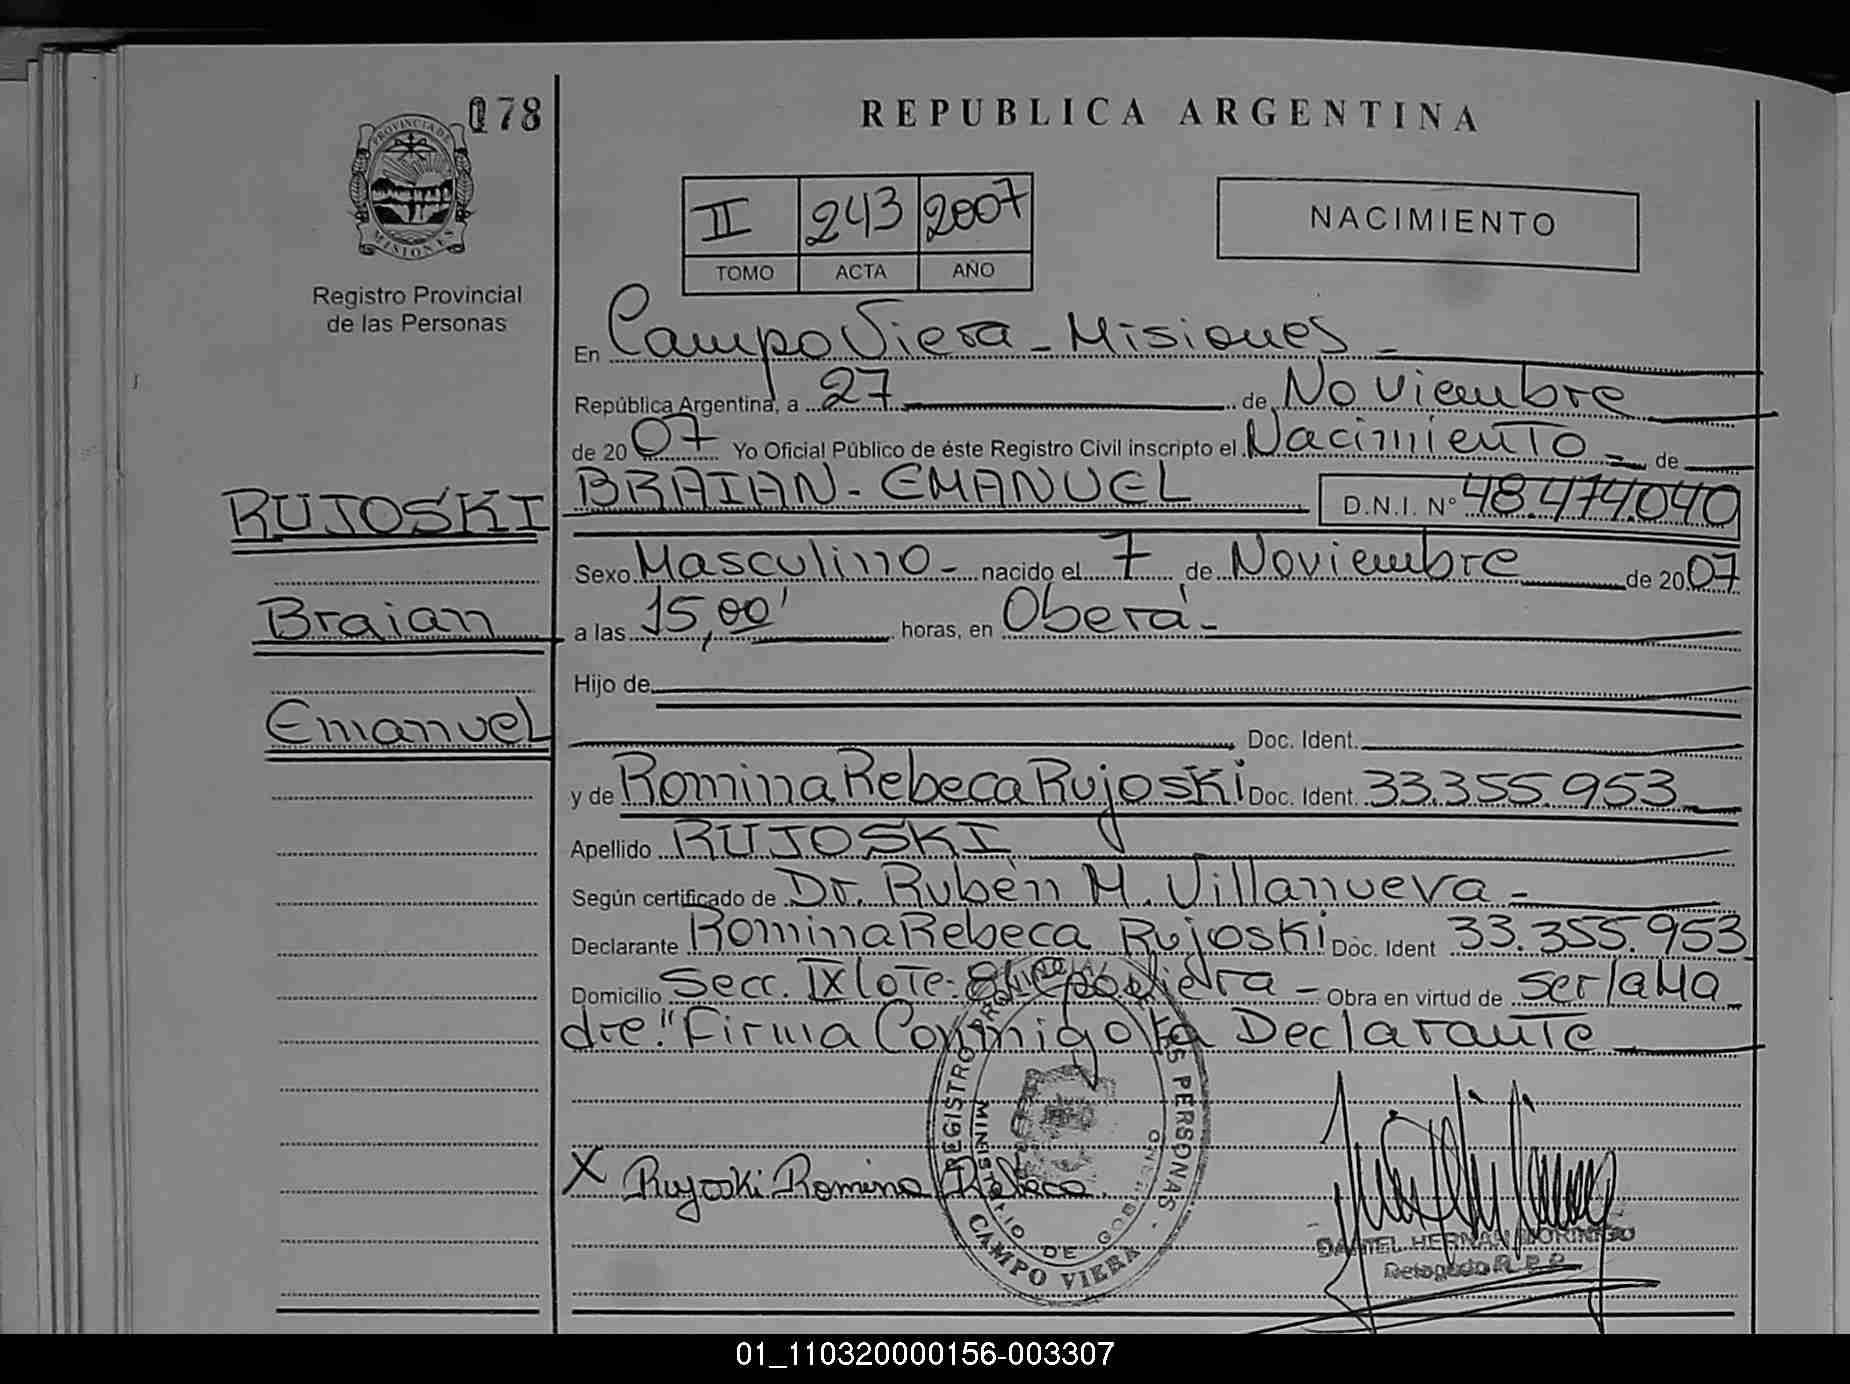 178
PROVINCIA DE
MISIONES
Registro Provincial
de las Personas
REPUBLICA ARGENTINA
II 243 2007
TOMO ACTA AÑO
NACIMIENTO
En Campo Viera - Misiones -
República Argentina, a 27 de Noviembre
de 2007 Yo Oficial Público de éste Registro Civil inscripto el Nacimiento de
BRAIAN - EMANUEL D.N.I. Nº 48.474.040
RUJOSKI
Braian
Emanuel
Sexo Masculino - nacido el 7 de Noviembre de 2007
a las 15,00' horas, en Oberá -
Hijo de
Doc. Ident.
y de Romina Rebeca Rujoski Doc. Ident. 33.355.953
Apellido RUJOSKI
Según certificado de Dr. Rubén M. Villanueva -
Declarante Romina Rebeca Rujoski Doc. Ident 33.355.953
Domicilio Secc. IX lote - Viera - Obra en virtud de ser la Ma
dre." Firma Conmigo la Declarante
X Rujoski Romina Rebeca
REGISTRO PROVINCIAL DE LAS PERSONAS -
MINISTERIO DE GOBIERNO
CAMPO VIERA
DANIEL HERNAN MORINIGO
Delegado R. P. P.
01_110320000156-003307